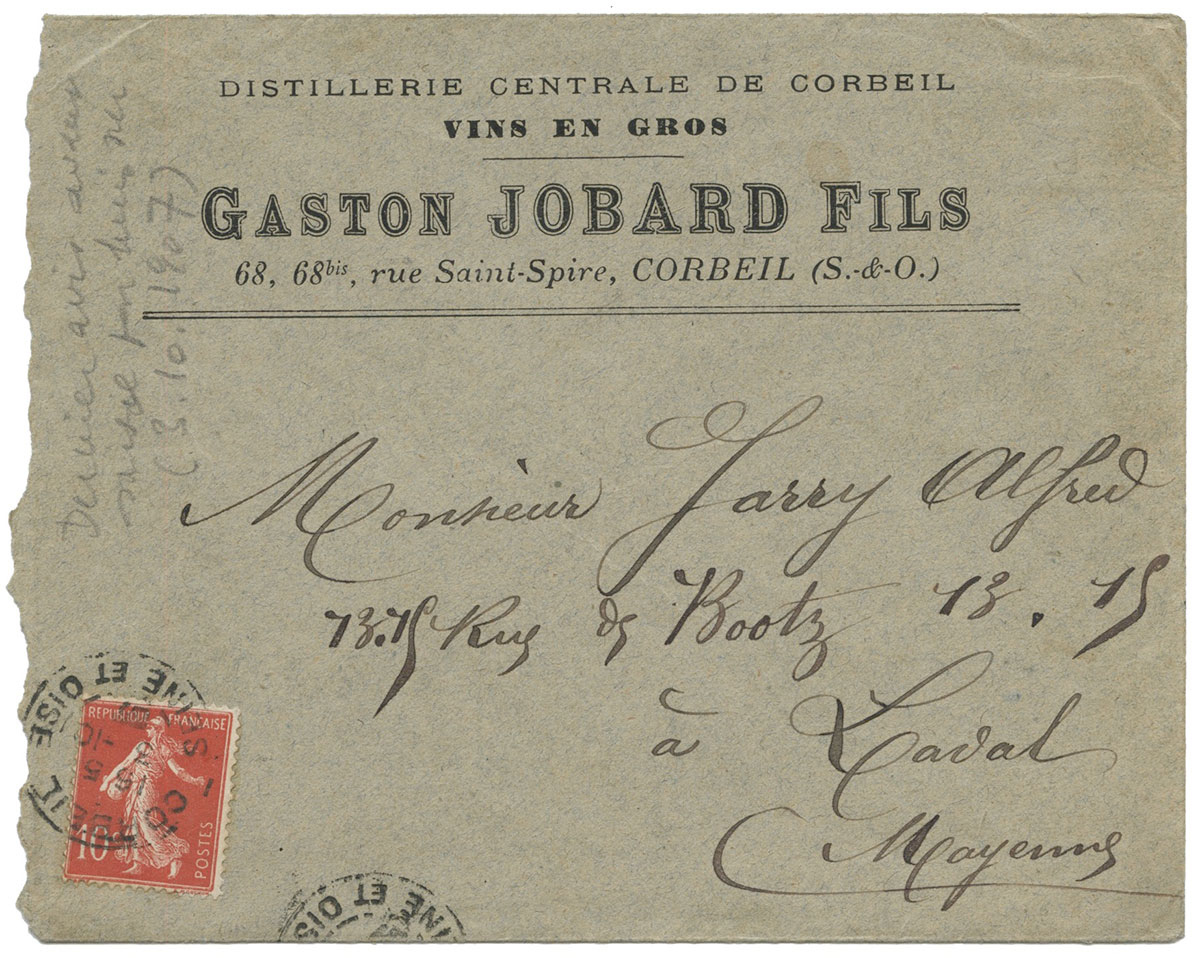 DISTILLERIE CENTRALE DE CORBEIL
VINS EN GROS
GASTON JOBARD FILS
68, 68bis, rue Saint-Spire, CORBEIL (S.-&-O.)
Dernier avis avant
saisie par huissier
(3.10.1907)
Monsieur Jarry Alfred
13.15 Rue de Bootz 13.15
à Laval
Mayenne
REPUBLIQUE FRANÇAISE
10c
POSTES
INE ET OISE
INE ET OIS